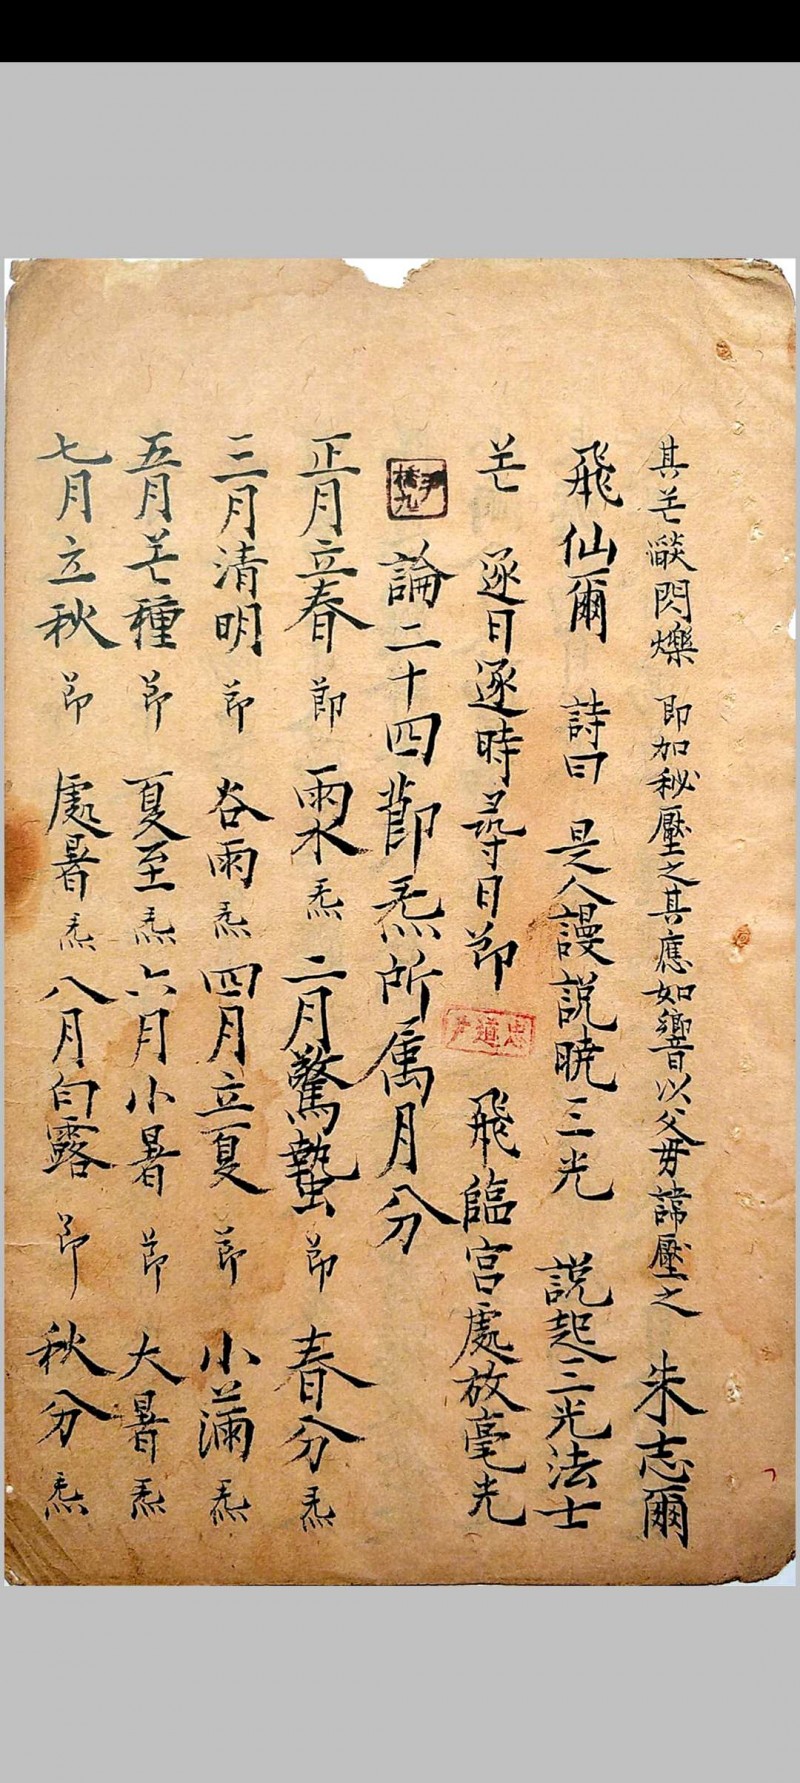 其芒燄閃爍 即加秘壓之其應如響以父毋諱壓之 朱志爾
飛仙爾 詩曰 是人謾説曉三光 説起三光法士
芒 逐日逐時尋日節 飛臨宮處放毫光
論二十四節炁所属月分
正月立春節 雨水炁 二月驚蟄節 春分炁
三月清明節 谷雨炁 四月立夏節 小滿炁
五月芒種節 夏至炁 六月小暑節 大暑炁
七月立秋節 處暑炁 八月白露節 秋分炁